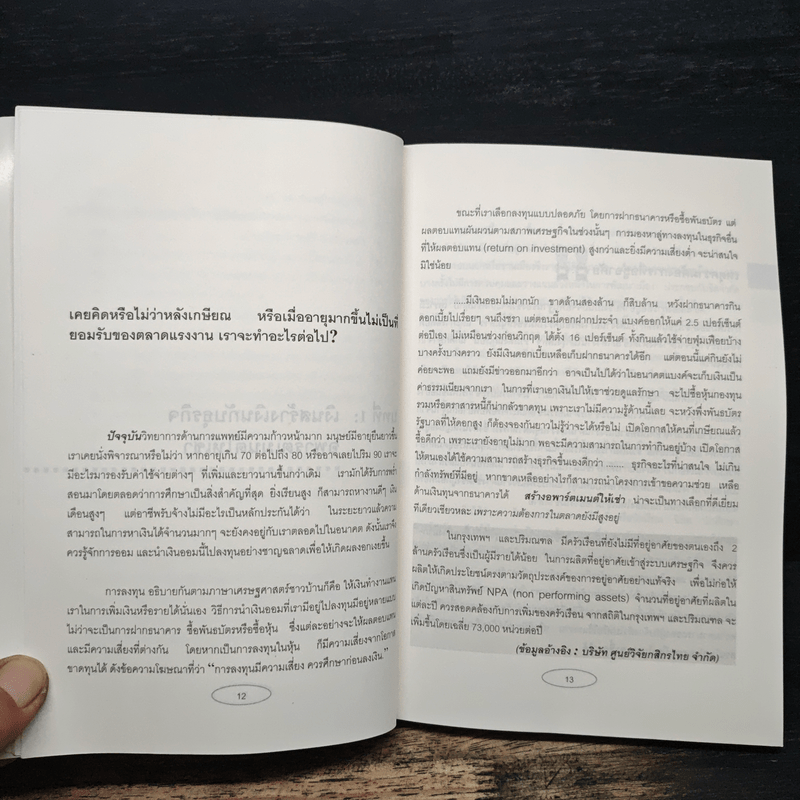 เคยคิดหรือไม่ว่าหลังเกษียณ หรือเมื่ออายุมากขึ้นไม่เป็นที่
ยอมรับของตลาดแรงงาน เราจะทำอะไรต่อไป?
ปัจจุบันวิทยาการด้านการแพทย์มีความก้าวหน้ามาก มนุษย์มีอายุยืนยาวขึ้น
เราเคยนั่งพิจารณาหรือไม่ว่า หากอายุเกิน 70 ต่อไปถึง 80 หรืออาจเลยไปริม 90 เราจะ
มีอะไรมารองรับค่าใช้จ่ายต่างๆ ที่เพิ่มและยาวนานขึ้นกว่าเดิม เรามักได้รับการพร่ำ
สอนมาโดยตลอดว่าการศึกษาเป็นสิ่งสำคัญที่สุด ยิ่งเรียนสูง ก็สามารถหางานดีๆ เงิน
เดือนสูงๆ แต่อาชีพรับจ้างไม่มีอะไรเป็นหลักประกันได้ว่า ในระยะยาวแล้วความ
สามารถในการหาเงินได้จำนวนมากๆ จะยังคงอยู่กับเราตลอดไปในอนาคต ดังนั้นเราจึง
ควรรู้จักการออม และนำเงินออมนี้ไปลงทุนอย่างชาญฉลาดเพื่อให้เกิดผลงอกเงยขึ้น
การลงทุน อธิบายกันตามภาษาเศรษฐศาสตร์ชาวบ้านก็คือ ให้เงินทำงานแทน
เราในการเพิ่มเงินหรือรายได้นั่นเอง วิธีการนำเงินออมที่เรามีอยู่ไปลงทุนมีอยู่หลายแบบ
ไม่ว่าจะเป็นการฝากธนาคาร ซื้อพันธบัตรหรือซื้อหุ้น ซึ่งแต่ละอย่างจะให้ผลตอบแทน
และมีความเสี่ยงที่ต่างกัน โดยหากเป็นการลงทุนในหุ้น ก็มีความเสี่ยงจากโอกาส
ขาดทุนได้ ดังข้อความโฆษณาที่ว่า “การลงทุนมีความเสี่ยง ควรศึกษาก่อนลงเงิน.”
12
ขณะที่เราเลือกลงทุนแบบปลอดภัย โดยการฝากธนาคารหรือซื้อพันธบัตร แต่
ผลตอบแทนผันผวนตามสภาพเศรษฐกิจในช่วงนั้นๆ การมองหาลู่ทางลงทุนในธุรกิจอื่น
ที่ให้ผลตอบแทน (return on investment) สูงกว่าและยิ่งมีความเสี่ยงต่ำ จะน่าสนใจ
มิใช่น้อย
.....มีเงินออมไม่มากนัก ขาดล้านสองล้าน ก็สิบล้าน หวังฝากธนาคารกิน
ดอกเบี้ยไปเรื่อยๆ จนถึงชรา แต่ตอนนี้ดอกฝากประจำ แบงค์ออกให้แค่ 2.5 เปอร์เซ็นต์
ต่อปีเอง ไม่เหมือนช่วงก่อนวิกฤต ได้ตั้ง 16 เปอร์เซ็นต์ ทั้งกินแล้วใช้จ่ายฟุ่มเฟือยบ้าง
บางครั้งบางคราว ยังมีเงินดอกเบี้ยเหลือเก็บฝากธนาคารได้อีก แต่ตอนนี้แค่กินยังไม่
ค่อยจะพอ แถมยังมีข่าวออกมาอีกว่า อาจเป็นไปได้ว่าในอนาคตแบงค์จะเก็บเงินเป็น
ค่าธรรมเนียมจากเรา ในการที่เราเอาเงินไปให้เขาช่วยดูแลรักษา จะไปซื้อหุ้นกองทุน
รวมหรือตราสารหนี้ก็น่ากลัวขาดทุน เพราะเราไม่มีความรู้ด้านนี้เลย จะหวังพึ่งพันธบัตร
รัฐบาลที่ให้ดอกสูง ก็ต้องจองกันยาวไม่รู้ว่าจะได้หรือไม่ เปิดโอกาสให้คนที่เกษียณแล้ว
ซื้อดีกว่า เพราะเรายังอายุไม่มาก พอจะมีความสามารถในการทำกินอยู่บ้าง เปิดโอกาส
ให้ตนเองได้ใช้ความสามารถสร้างธุรกิจขึ้นเองดีกว่า ....... ธุรกิจอะไรที่น่าสนใจ ไม่เกิน
กำลังทรัพย์ที่มีอยู่ หากขาดเหลืออย่างไรก็สามารถนำโครงการเข้าขอความช่วย เหลือ
ด้านเงินทุนจากธนาคารได้ สร้างอพาร์ตเมนต์ให้เช่า น่าจะเป็นทางเลือกที่ดีเยี่ยม
ทีเดียวเชียวหละ เพราะความต้องการในตลาดยังมีสูงอยู่
ในกรุงเทพฯ และปริมณฑล มีครัวเรือนที่ยังไม่มีที่อยู่อาศัยของตนเองถึง 2
ล้านครัวเรือนซึ่งเป็นผู้มีรายได้น้อย ในการผลิตที่อยู่อาศัยเข้าสู่ระบบเศรษฐกิจ จึงควร
ผลิตให้เกิดประโยชน์ตรงตามวัตถุประสงค์ของการอยู่อาศัยอย่างแท้จริง เพื่อไม่ก่อให้
เกิดปัญหาสินทรัพย์ NPA (non performing assets) จำนวนที่อยู่อาศัยที่ผลิตใน
แต่ละปี ควรสอดคล้องกับการเพิ่มของครัวเรือน จากสถิติในกรุงเทพฯ และปริมณฑล จะ
เพิ่มขึ้นโดยเฉลี่ย 73,000 หน่วยต่อปี
(ข้อมูลอ้างอิง : บริษัท ศูนย์วิจัยกสิกรไทย จำกัด)
13